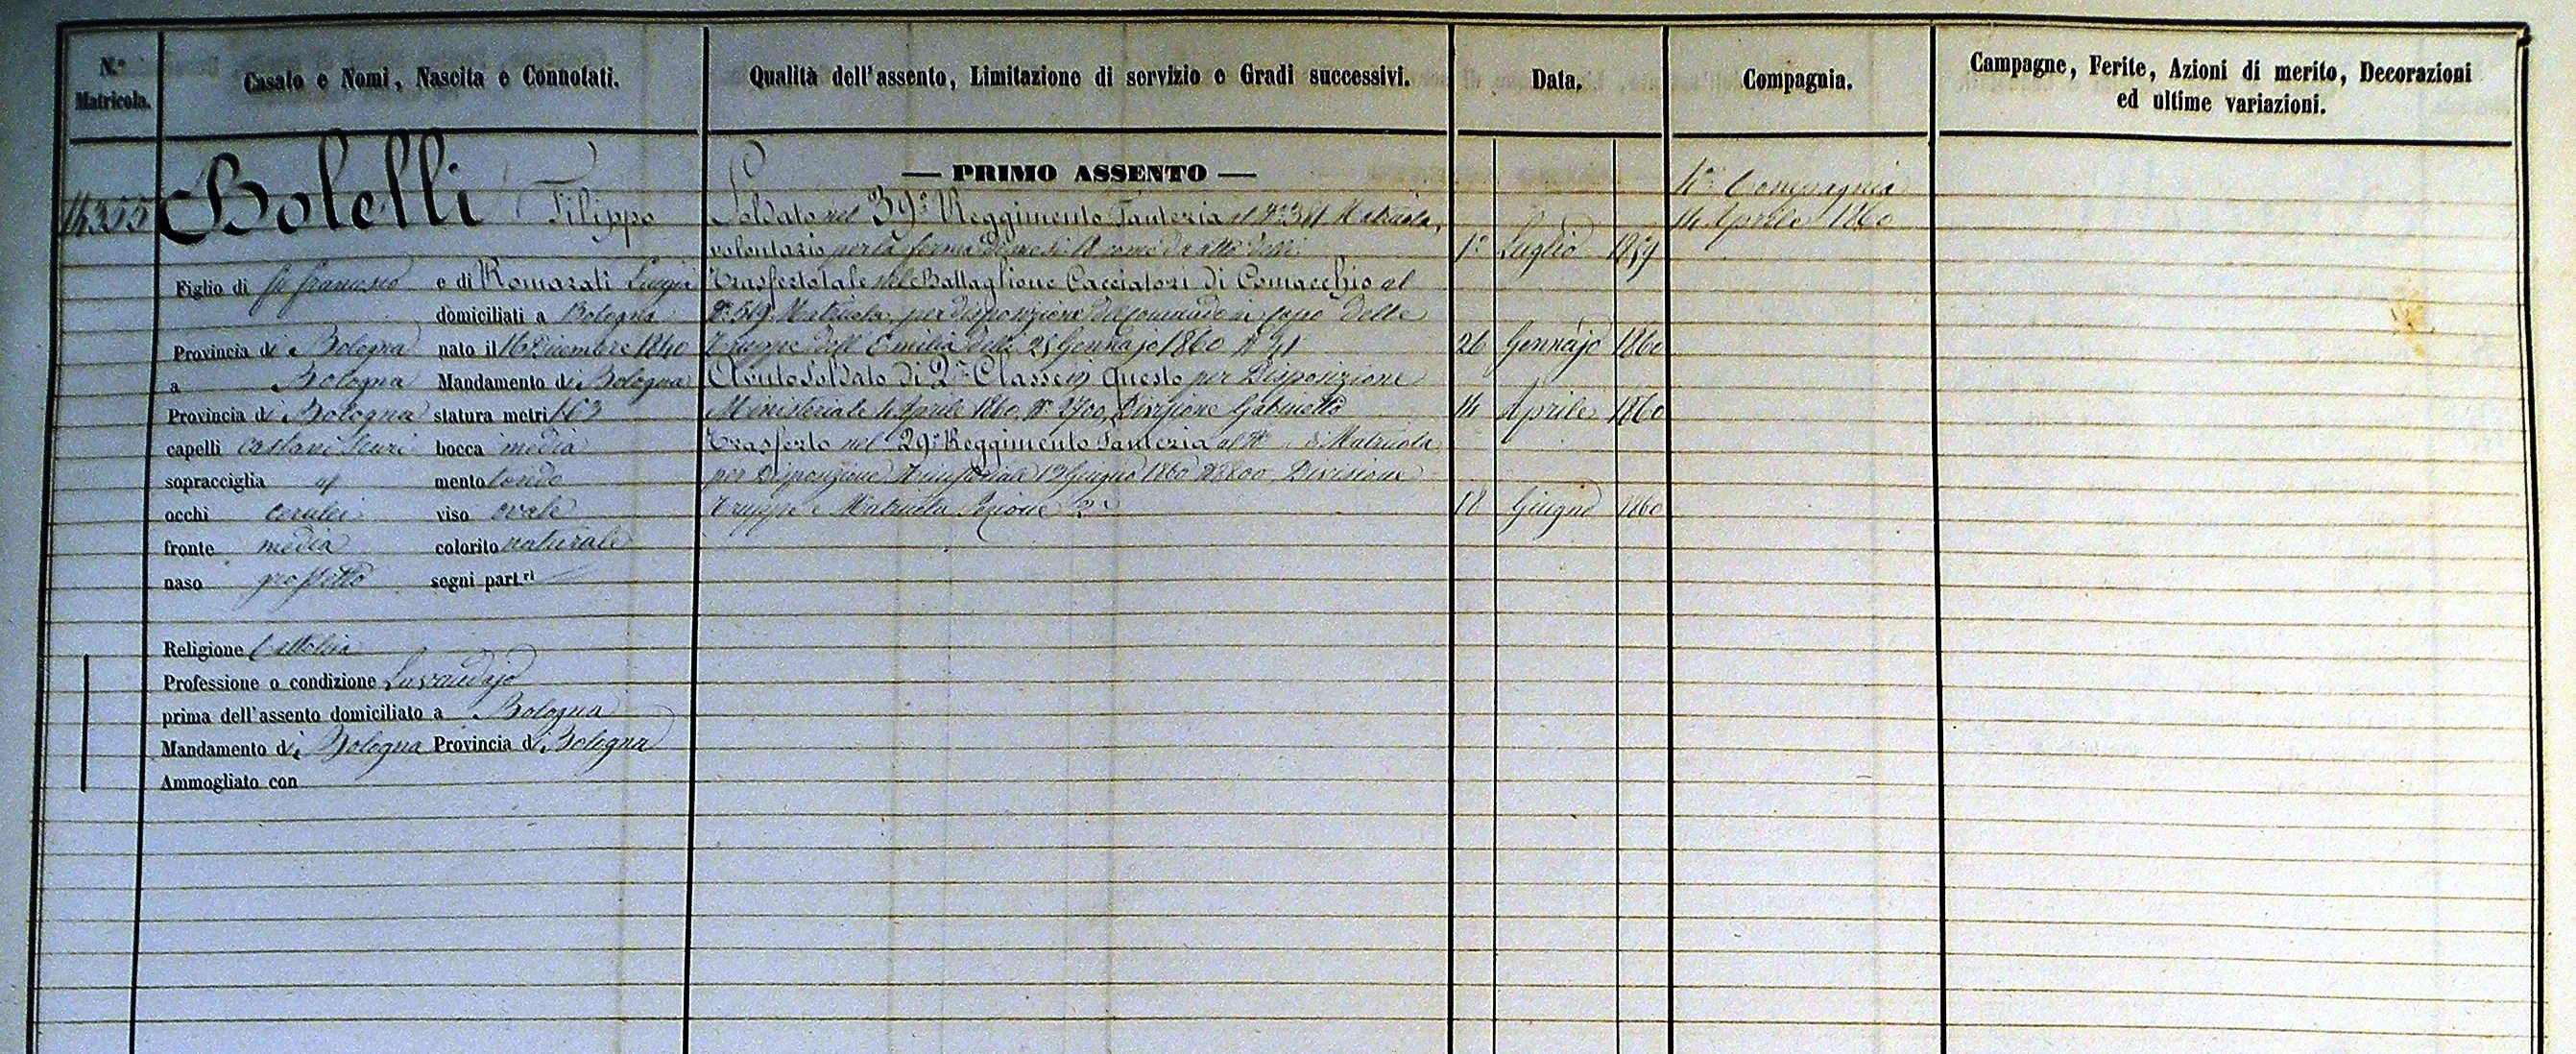 N.º Matricola.
Casato e Nomi, Nascita e Connotati.
Qualità dell'assento, Limitazione di servizio e Gradi successivi.
Data.
Compagnia.
Campagne, Ferite, Azioni di merito, Decorazioni
ed ultime variazioni.
14355
Bolelli Filippo
Figlio di fu Francesco e di Romazati Luigia
domiciliati a Bologna
Provincia di Bologna nato il 16 Dicembre 1840
a Bologna Mandamento di Bologna
Provincia di Bologna statura metri 1.63
capelli castani scuri bocca media
sopracciglia id mento tondo
occhi cerulei viso ovale
fronte media colorito naturale
naso grossetto segni part.ri
Religione Cattolica
Professione o condizione Lavandajo
prima dell'assento domiciliato a Bologna
Mandamento di Bologna Provincia di Bologna
Ammogliato con
— PRIMO ASSENTO —
Soldato nel 39º Reggimento Fanteria al Nº Matricola,
volontario per la ferma di mesi 1º Luglio 1859
Trasferto Tale nel Battaglione Cacciatori di Comacchio al
Nº Matricola, per disposizione del comando in capo delle
Truppe dell' Emilia delli 25 Gennajo 1860 Nº 26 Gennajo 1860
Avuto Soldato di 2ª Classe in questo per Disposizione
Ministeriale 4 Aprile 1860, Nº 2700, Divisione Gabinetto 14 Aprile 1860
Trasferto nel 29º Reggimento Fanteria al Nº di Matricola
per Disposizione Ministeriale Giugno 1860 Divisione
Truppe e Matricola Sezione 2ª 18 Giugno 1860
4ª Compagnia
14 Aprile 1860